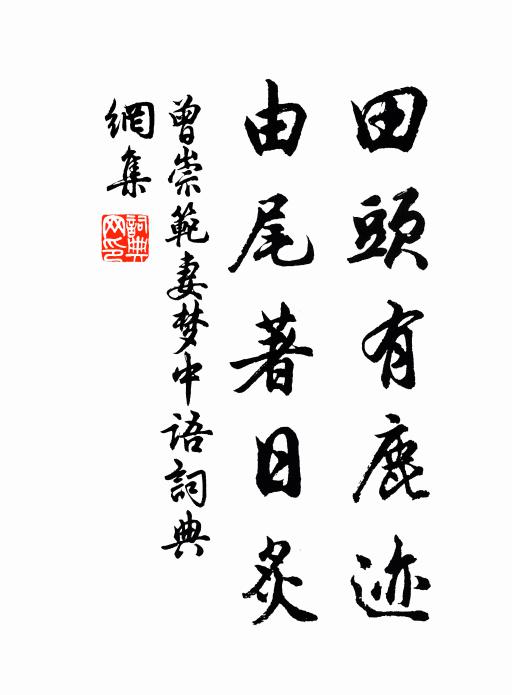 田頭有鹿迹
由尾著日炙
曾崇範妻梦中语詞典
網集
詞典
网印